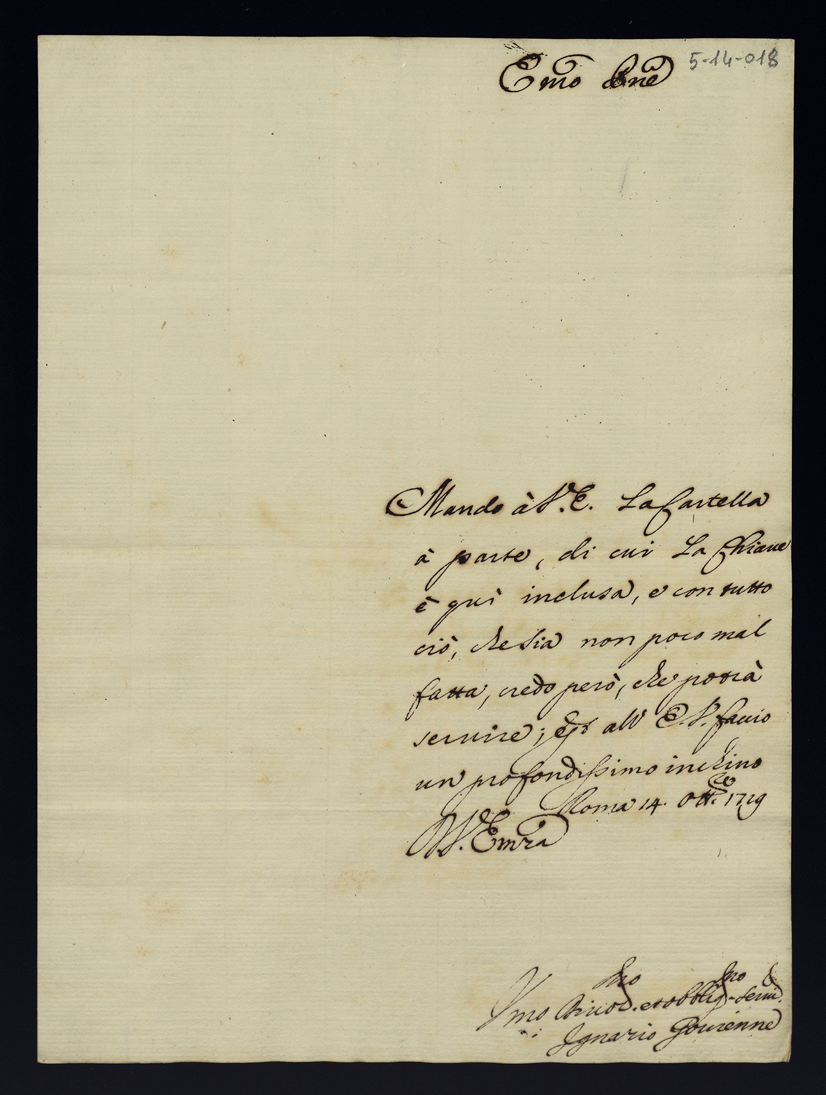 5-14-018
Emo Pnē
Mando à V.E. La Cartella
à parte, di cui La Chiaue
è quì inclusa, e con tutto
ciò, che sia non poco mal
fatta, credo però, che potrà
seruire; et all' E.V. faccio
un profondissimo inchino
Roma 14. Ottre 1719
D.V. Emza
Vmo Diuotmo et obbligmo Serure
Ignazio